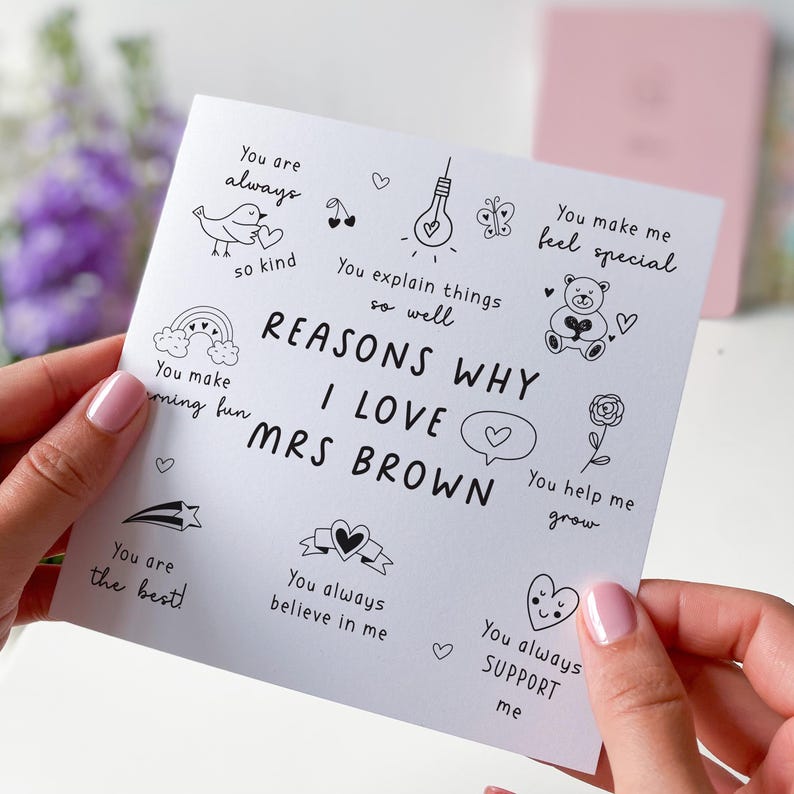 You are
always
so kind
You explain things
so well
You make me
feel special
You make
fun
REASONS WHY
I LOVE
MRS BROWN
You help me
grow
You are
the best!
You always
believe in me
You always
SUPPORT
me